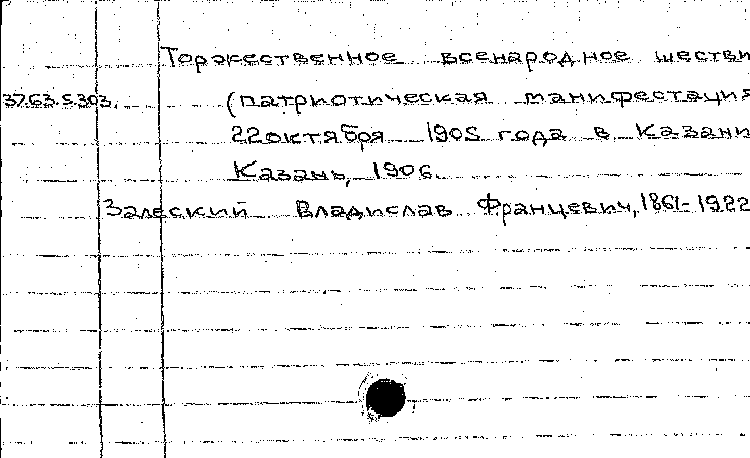 Торжественное всенародное шестви
3763.5.303. (патриотическая манифестация
22 октября 1905 года в Казани
Казань, 1906.
Залеский Владислав Францевич, 1861-1922